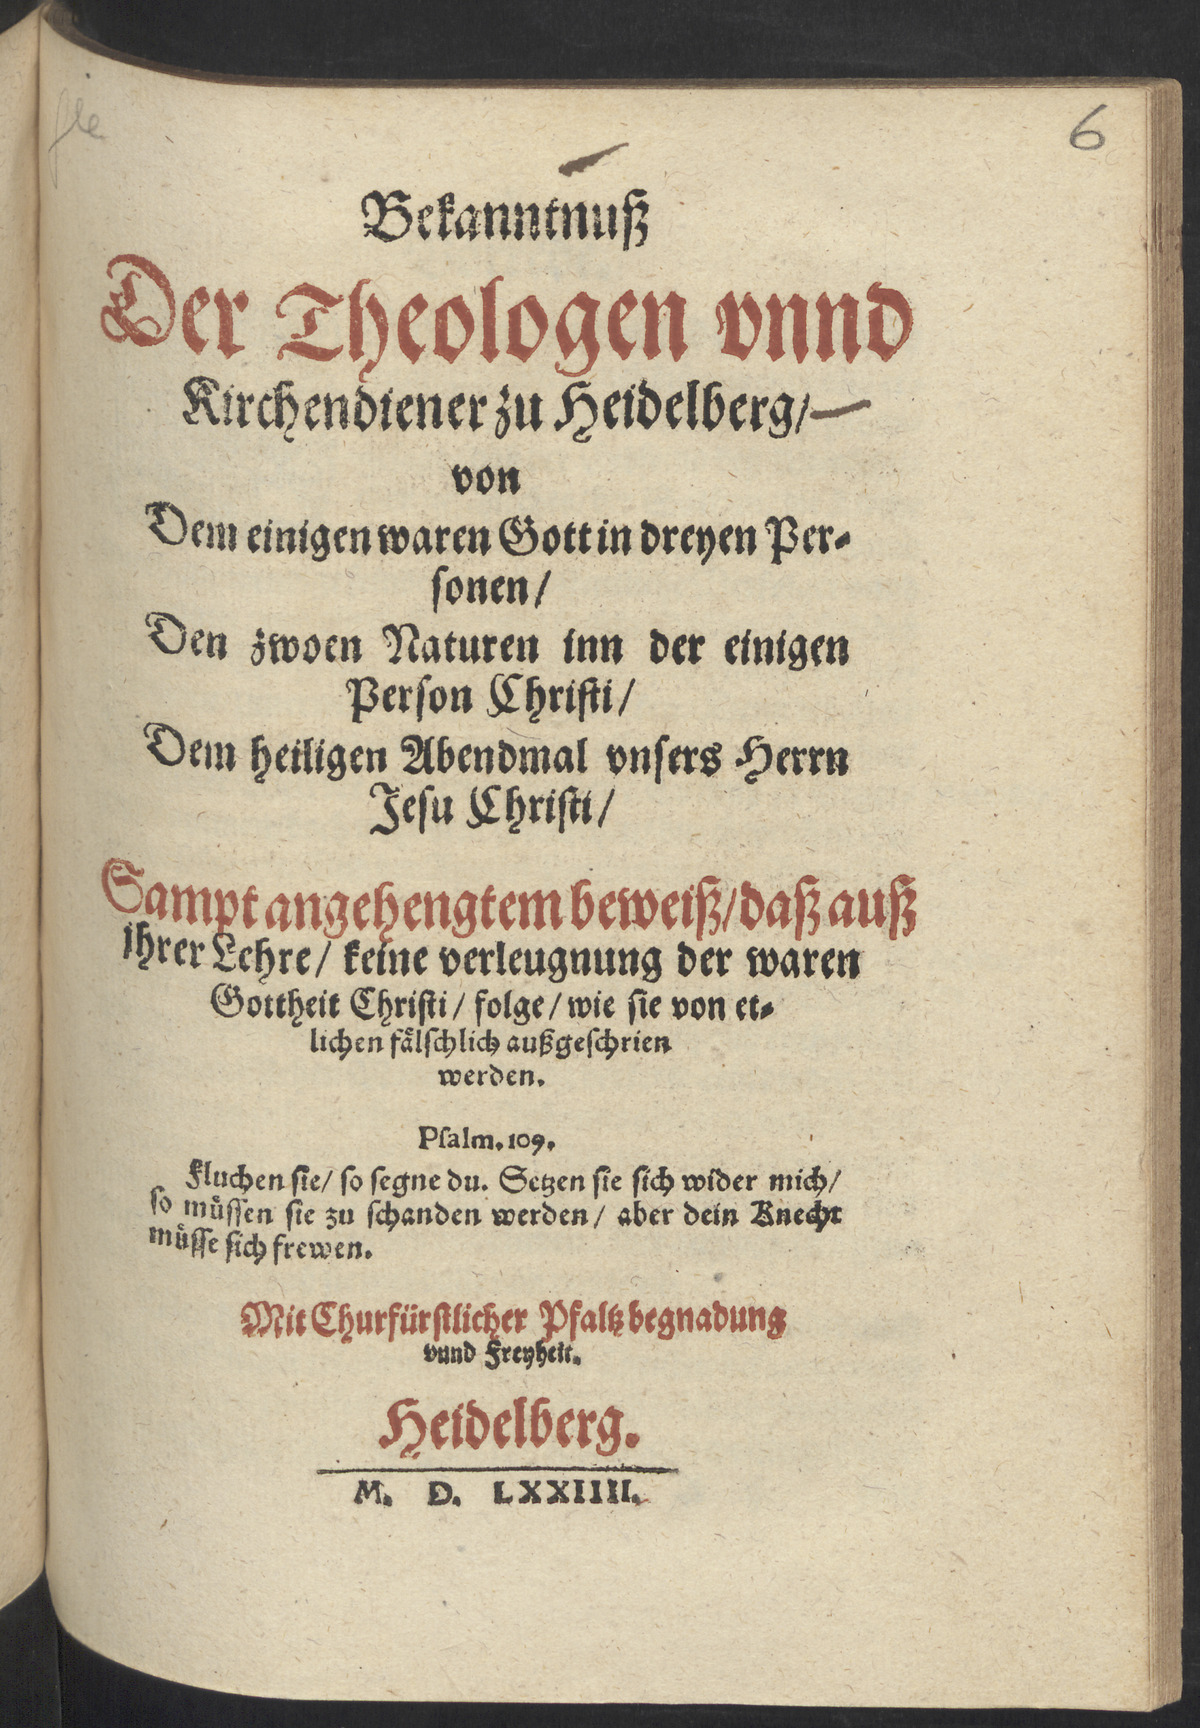 6
Bekanntnuß
Der Theologen vnnd
Kirchendiener zu Heidelberg/
von
Dem einigen waren Gott in dreyen Per-
sonen/
Den zwoen Naturen inn der einigen
Person Christi/
Dem heiligen Abendmal vnsers Herrn
Jesu Christi/
Sampt angehengtem beweiß/ daß auß
ihrer Lehre/ keine verleugnung der waren
Gottheit Christi/ folge/ wie sie von et-
lichen fälschlich außgeschrien
werden.
Psalm. 109.
Fluchen sie/ so segne du. Setzen sie sich wider mich/
so müssen sie zu schanden werden/ aber dein Knecht
müsse sich frewen.
Mit Churfürstlicher Pfaltz begnadung
vnnd Freyheit.
Heidelberg.
M. D. LXXIIII.